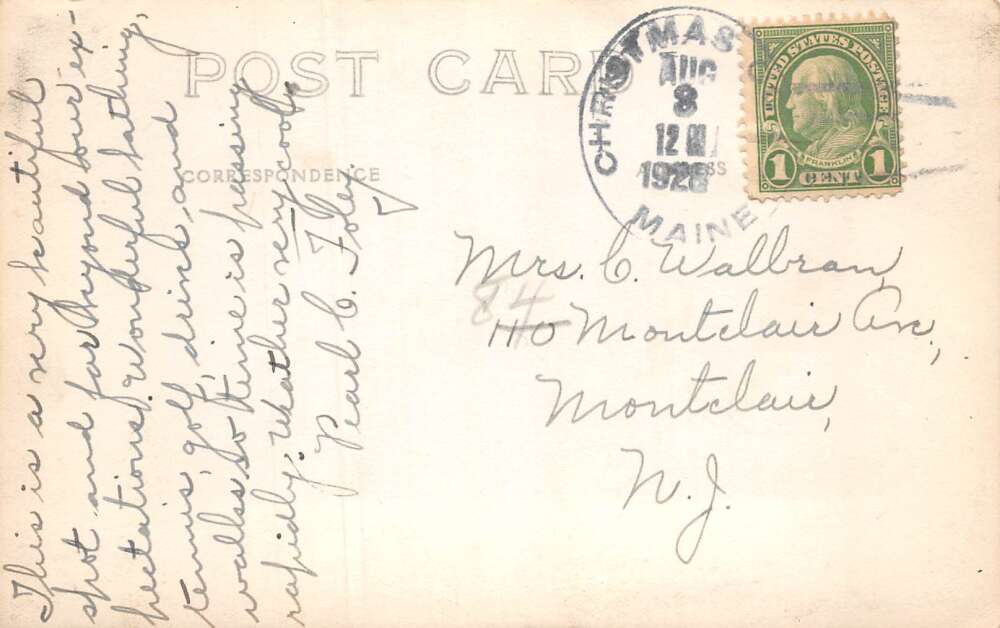 POST CARD
CORRESPONDENCE
This is a very beautiful
spot and far beyond our ex-
pectations. Wonderful bathing,
tennis, golf, drives, and
walks so time is passing
rapidly. Weather very cool.
Pearl C. Foley
CHRISTMAS
AUG
8
12 M
1928
MAINE
UNITED STATES POSTAGE
FRANKLIN
1 CENT 1
Mrs. C. Walbran,
84
110 Montclair Ave,
Montclair,
N.J.